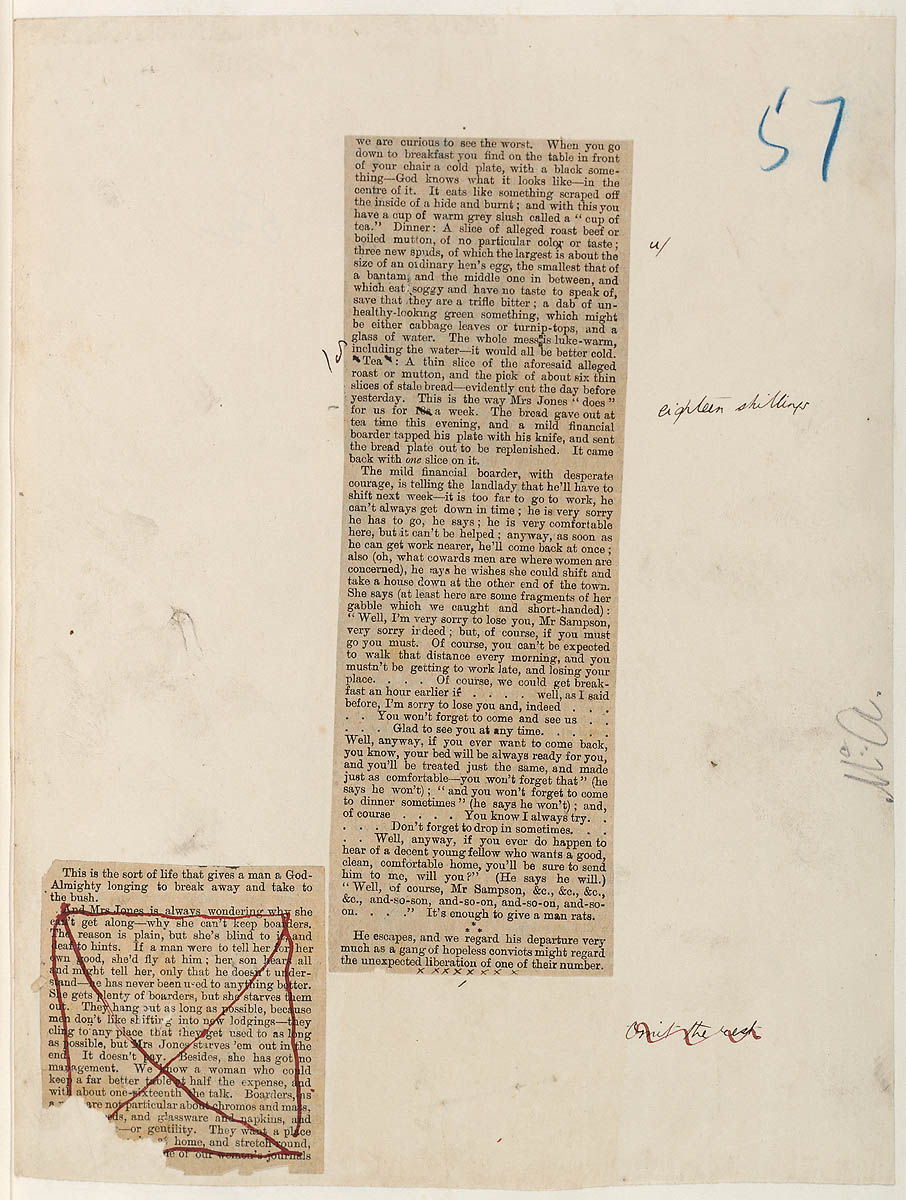 57
we are curious to see the worst. When you go
down to breakfast you find on the table in front
of your chair a cold plate, with a black some-
thing—God knows what it looks like—in the
centre of it. It eats like something scraped off
the inside of a hide and burnt; and with this you
have a cup of warm grey slush called a "cup of
tea." Dinner: A slice of alleged roast beef or
boiled mutton, of no particular color or taste;
u/
three new spuds, of which the largest is about the
size of an ordinary hen's egg, the smallest that of
a bantam, and the middle one in between, and
which eat soggy and have no taste to speak of,
save that they are a trifle bitter; a dab of un-
healthy-looking green something, which might
be either cabbage leaves or turnip-tops, and a
glass of water. The whole mess is luke-warm,
including the water—it would all be better cold.
Tea: A thin slice of the aforesaid alleged
roast or mutton, and the pick of about six thin
slices of stale bread—evidently cut the day before
yesterday. This is the way Mrs Jones "does"
for us for a week. The bread gave out at
eighteen shillings
tea time this evening, and a mild financial
boarder tapped his plate with his knife, and sent
the bread plate out to be replenished. It came
back with one slice on it.
The mild financial boarder, with desperate
courage, is telling the landlady that he'll have to
shift next week—it is too far to go to work, he
can't always get down in time; he is very sorry
he has to go, he says; he is very comfortable
here, but it can't be helped; anyway, as soon as
he can get work nearer, he'll come back at once;
also (oh, what cowards men are where women are
concerned), he says he wishes she could shift and
take a house down at the other end of the town.
She says (at least here are some fragments of her
gabble which we caught and short-handed):
"Well, I'm very sorry to lose you, Mr Sampson,
very sorry indeed; but, of course, if you must
go you must. Of course, you can't be expected
to walk that distance every morning, and you
mustn't be getting to work late, and losing your
place. . . . Of course, we could get break-
fast an hour earlier if . . . . well, as I said
before, I'm sorry to lose you and, indeed . . .
. . You won't forget to come and see us . .
. . . Glad to see you at any time. . . .
Well, anyway, if you ever want to come back,
you know, your bed will be always ready for you,
and you'll be treated just the same, and made
just as comfortable—you won't forget that" (he
says he won't); "and you won't forget to come
to dinner sometimes" (he says he won't); and,
of course . . . . You know I always try. .
. . . Don't forget to drop in sometimes. . .
. . Well, anyway, if you ever do happen to
hear of a decent young fellow who wants a good,
clean, comfortable home, you'll be sure to send
him to me, will you?" (He says he will.)
"Well, of course, Mr Sampson, &c., &c., &c.,
&c., and-so-son, and-so-on, and-so-on, and-so-
on. . . ." It's enough to give a man rats.
* * *
He escapes, and we regard his departure very
much as a gang of hopeless convicts might regard
the unexpected liberation of one of their number.
x x x x x x x
Mc A.
Omit the rest
This is the sort of life that gives a man a God-
Almighty longing to break away and take to
the bush.
And Mrs Jones is always wondering why she
can't get along—why she can't keep boarders.
The reason is plain, but she's blind to it and
deaf to hints. If a man were to tell her for her
own good, she'd fly at him; her son hears all
and might tell her, only that he doesn't under-
stand—he has never been used to anything better.
She gets plenty of boarders, but she starves them
out. They hang out as long as possible, because
men don't like shifting into new lodgings—they
cling to any place that they get used to as long
as possible, but Mrs Jones starves 'em out in the
end. It doesn't pay. Besides, she has got no
management. We know a woman who could
keep a far better table at half the expense, and
with about one-sixteenth the talk. Boarders, as
are not particular about chromos and mats,
and glassware and napkins, and
—or gentility. They want a place
home, and stretch round,
of our women's journals